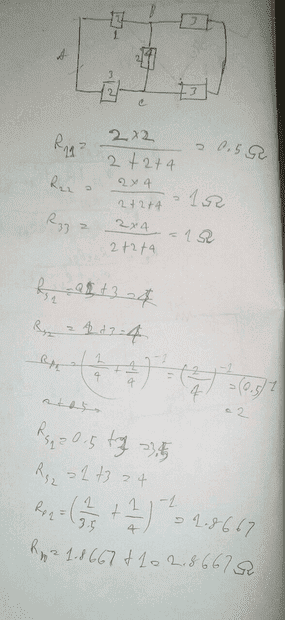 B
2 3
1
A 2 4
3
2 3
C
R11 = 2×2 / 2+2+4 = 0.5 Ω
R22 = 2×4 / 2+2+4 = 1 Ω
R33 = 2×4 / 2+2+4 = 1 Ω
+3 = 4
+3 = 4
= (1/4 + 1/4)^-1 = (2/4)^-1 = (0.5)^-1
= 2
RS1 = 0.5 + 3 = 3.5
RS2 = 1 + 3 = 4
RP1 = (1/3.5 + 1/4)^-1 = 1.8667
= 1.8667 + 1 = 2.8667 Ω